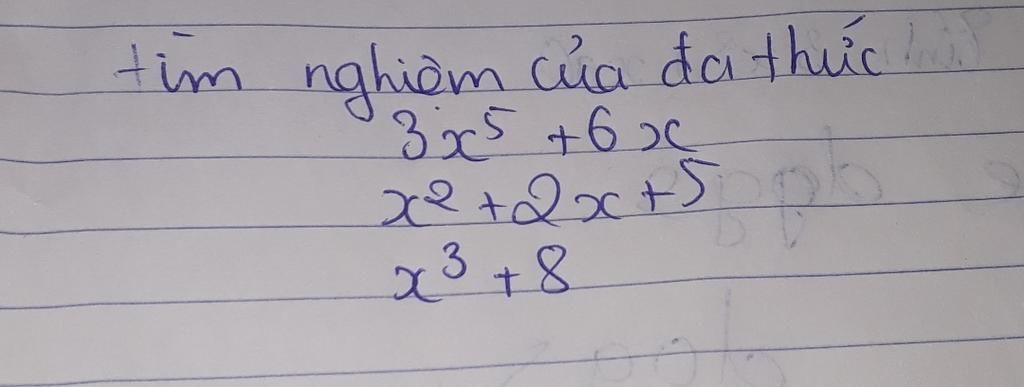 tìm nghiệm của đa thức
3x⁵ + 6x
x² + 2x + 5
x³ + 8